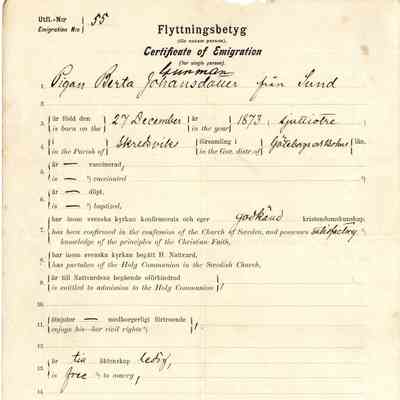 Utfl.-N:r } 55
Emigration N:o
Flyttningsbetyg
(för ensam person).
Certificate of Emigration
(for single person).
Gunman
1. Pigan Berta Johansdotter från Sund
2.
3. är född den } 27 December } är } 1873 sjuttiotre
is born on the in the year
4. i } Skredsvik } församling i } Göteborgs och Bohus } län.
in the Parish of in the Gov. distr. of
5. är — vaccinerad,
is — vaccinated
6. är — döpt,
is — baptized,
har inom svenska kyrkan konfirmerats och eger godkänd kristendomskunskap,
7. has been confirmed in the confession of the Church of Sweden, and possesses satisfactory
knowledge of the principles of the Christian Faith,
8. har inom svenska kyrkan begått H. Nattvard,
has partaken of the Holy Communion in the Swedish Church,
9. är till Nattvardens begående oförhindrad
is entitled to admission to the Holy Communion
10.
11. åtnjuter — medborgerligt förtroende
enjoys his—her civil rights
12.
13. är till äktenskap ledig,
is free to marry,
14.